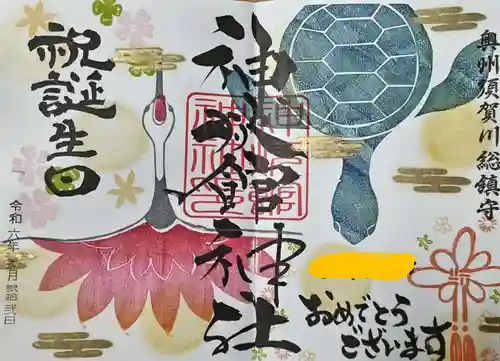 奥州須賀川総鎮守
神炊館神社
祝誕生日
令和六年 月 弐拾弐日
おめでとう
ございます